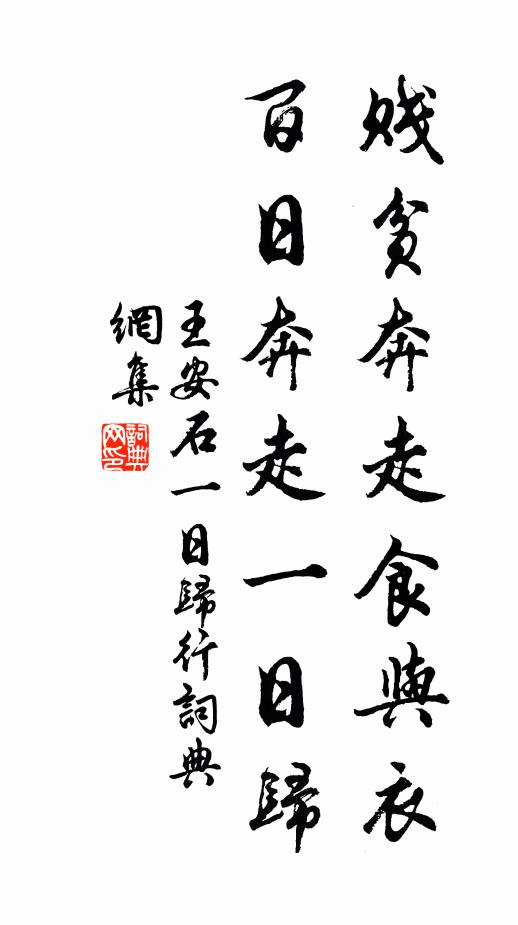 賤貧奔走食與衣
百日奔走一日歸
王安石一日歸行詞典
網集
詞典
网印